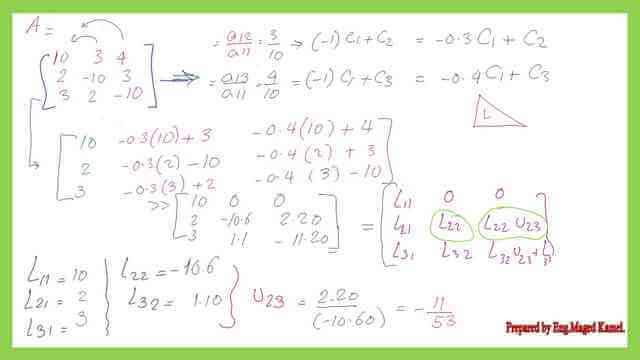 A =
10 3 4
2 -10 3
3 2 -10
= a12/a11 = 3/10 → (-1) C1 + C2 = -0.3 C1 + C2
= a13/a11 = 4/10 = (-1) C1 + C3 = -0.4 C1 + C3
L
10 -0.3(10) + 3 -0.4(10) + 4
2 -0.3(2) - 10 -0.4(2) + 3
3 -0.3(3) + 2 -0.4(3) - 10
>> 10 0 0
2 -10.6 2.20
3 1.1 -11.20
= L11 0 0
L21 L22 L22 U23
L31 L32 L32 U23 +
L11 = 10
L21 = 2
L31 = 3
L22 = -10.6
L32 = 1.10
U23 = 2.20/(-10.60) = -11/53
Prepared by Eng.Maged Kamel.